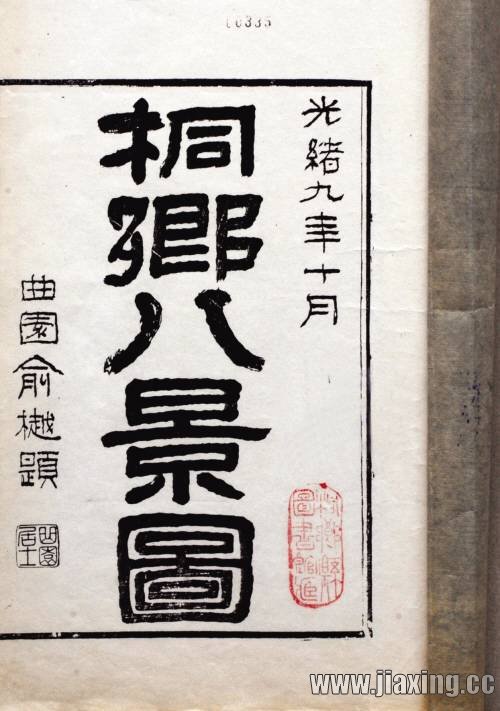 00335
光緒九年十月
桐鄉八景圖
曲園俞樾題
曲園居士
www.jiaxing.cc